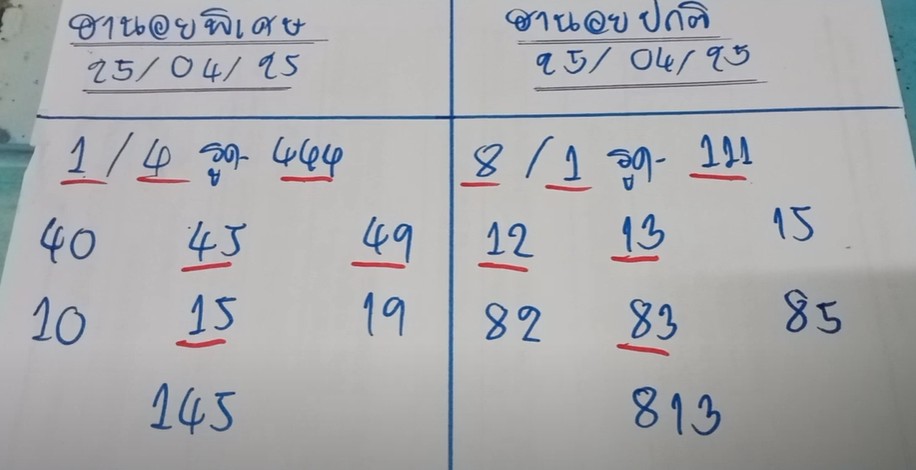 ฮานอยพิเศษ
25/04/25
1/4 รูด- 444
40 45 49
10 15 19
145
ฮานอยปกติ
25/04/25
8/1 รูด- 111
12 13 15
82 83 85
813